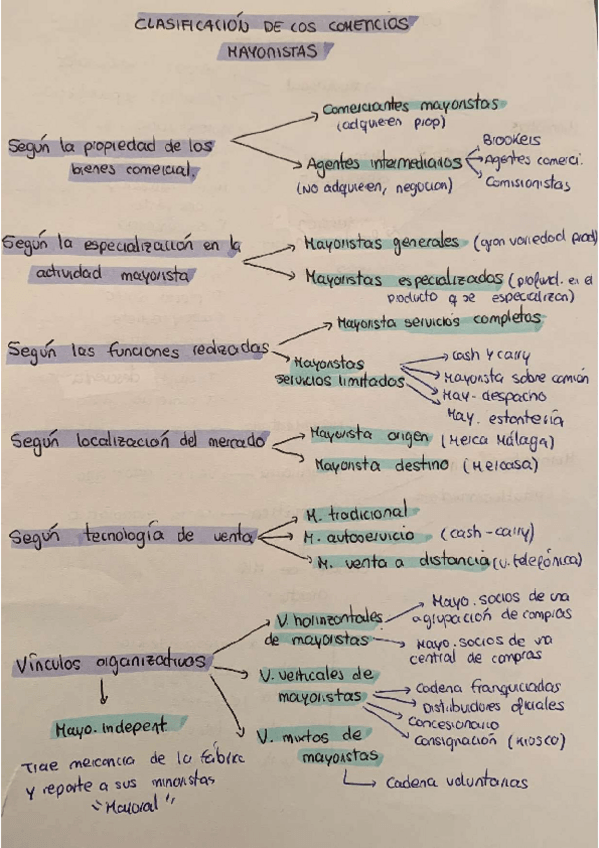 CLASIFICACIÓN DE LOS COMERCIOS
MAYORISTAS
Según la propiedad de los
bienes comercial.
Comerciantes mayoristas
(adquieren prop)
Agentes intermediarios
(No adquieren, negocian)
Brookers
Agentes comerci.
Comisionistas
Según la especialización en la
actividad mayorista
Mayoristas generales (gran variedad prod)
Mayoristas especializados (profund. en el
producto q se especializan)
Según las funciones realizadas
Mayorista servicios completos
Mayoristas
servicios limitados
Cash y carry
Mayorista sobre camión
May-despacho
May. estantería
Según localización del mercado
Mayorista origen (Merca Málaga)
Mayorista destino (Mercasa)
Según tecnología de venta
M. tradicional
M. autoservicio (cash-carry)
M. venta a distancia (v. telefónica)
Vínculos organizativos
V. horizontales
de mayoristas
Mayo. socios de una
agrupación de compras
Mayo. socios de una
central de compras
V. verticales de
mayoristas
Cadena franquiciadas
Distribuidores oficiales
Concesionario
Consignación (Kiosco)
V. mixtos de
mayoristas
Cadena voluntarias
Mayo. indepent.
Trae mercancía de la fábrica
y reporte a sus minoristas
"Mayoral"